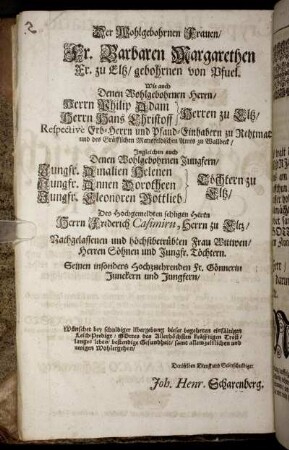 Der Wohlgebohrnen Frauen/
Fr. Barbaren Margarethen
Fr. zu Eltz/ gebohrnen von Pfuel.
Wie auch
Denen Wohlgebohrnen Herrn/
Herrn Philip Adam
Herrn Hans Christoff
Herren zu Eltz/
Respective Erb-Herrn und Pfand-Einhabern zu Rehtmar
und des Gräfflichen Amtes zu
Ingleichen auch
Denen Wohlgebohrnen Jungfern/
Jungfr. Amalien Helenen
Jungfr. Annen Dorotheen
Jungfr. Eleonoren Gottlieb
Töchtern zu
Eltz/
Des Hochgemeldten sehligen Herrn
Herrn Friderich Casimirn, Herrn zu Eltz/
Nachgelassenen und höchstbetrübten Frau Wittwen/
Herren Söhnen und Jungfr. Töchtern.
Seinen insonders Hochzuehrenden Fr. Gönnerin
Junckern und Jungfern/
Wünschet bey schuldiger dieser begehrten einfältigen
Leich-Predigt/ des Allerhöchsten kräfftigen Trost/
langes Leben/ beständige Gesundheit/ samt allem zeitlichen und
ewigen Wohlergehen/
Joh. Henr. Scharenberg.